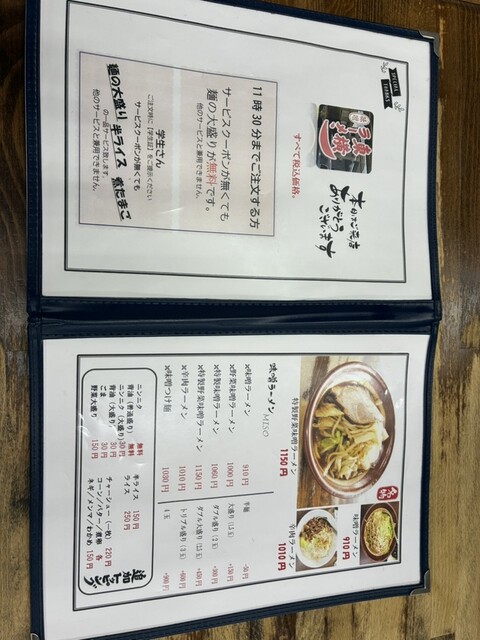 SPECIAL
THANKS
本日はご来店
ありがとう
ございます
すべて税込価格。
11時30分までご注文する方
サービスクーポンが無くても
麺の大盛りが無料です。
他のサービスと兼用できません。
学生さん
ご注文時に【学生証】をご提示ください
サービスクーポンが無くても
麺の大盛り 半ライス 煮たまご
の一品サービス致します。
他のサービスと兼用できません。
特製野菜味噌ラーメン
1150円
味噌ラーメン
910円
辛肉ラーメン
1010円
味噌ラーメン MISO
味噌ラーメン 910円
野菜味噌ラーメン 1000円
特製味噌ラーメン 1060円
特製野菜味噌ラーメン 1150円
辛肉ラーメン 1010円
味噌つけ麺 1030円
半麺 -50円
大盛り(1.5玉) +150円
ダブル盛り(2玉) +300円
ダブル大盛り(2.5玉) +450円
トリプル盛り(3玉) +600円
4玉 +900円
追加トッピング
ニンニク 無料
背油(普通盛り) 無料
ニンニク(大盛り) 30円
背油(大盛り) 30円
ごま 30円
野菜大盛り 150円
半ライス 150円
ライス 250円
チャーシュー(一枚) 220円
コーン/バター/煮卵 各
ネギ/メンマ/わかめ 150円